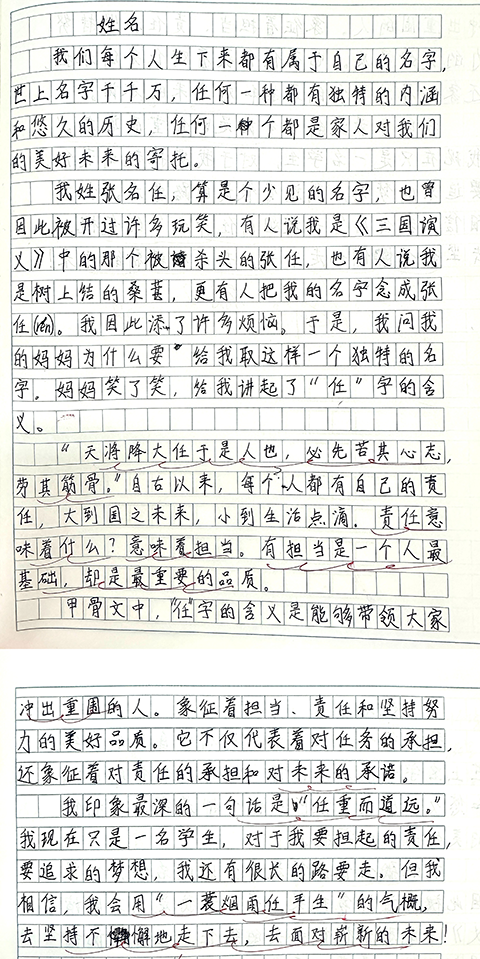 姓名
我们每个人生下来都有属于自己的名字，
世上名字千千万，任何一种都有独特的内涵
和悠久的历史，任何一个都是家人对我们
的美好未来的寄托。
我姓张名任，算是个少见的名字，也曾
因此被开过许多玩笑，有人说我是《三国演
义》中的那个被杀头的张任，也有人说我
是树上结的桑葚，更有人把我的名字念成张
任(rén)。我因此添了许多烦恼。于是，我问我
的妈妈为什么要给我取这样一个独特的名
字。妈妈笑了笑，给我讲起了“任”字的含
义。
“天将降大任于是人也，必先苦其心志，
劳其筋骨。”自古以来，每个人都有自己的责
任，大到国之未来，小到生活点滴。责任意
味着什么？意味着担当。有担当是一个人最
基础，却是最重要的品质。
甲骨文中，“任”字的含义是能够带领大家
冲出重围的人。象征着担当、责任和坚持努
力的美好品质。它不仅代表着对任务的承担，
还象征着对责任的承担和对未来的承诺。
我印象最深的一句话是“任重而道远。”
我现在只是一名学生，对于我要担起的责任，
要追求的梦想，我还有很长的路要走。但我
相信，我会用“一蓑烟雨任平生”的气概，
去坚持不懈地走下去，去面对崭新的未来！